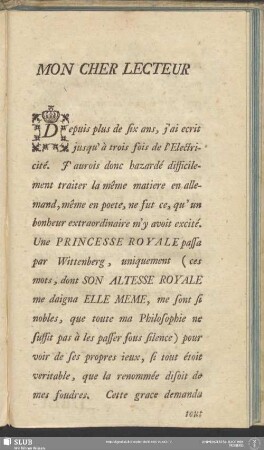 MON CHER LECTEUR
Depuis plus de six ans, j'ai ecrit
jusqu'à trois fois de l'Electri-
cité. J'aurois donc hazardé difficile-
ment traiter la même matiere en alle-
mand, même en poete, ne fut ce, qu'un
bonheur extraordinaire m'y avoit excité.
Une PRINCESSE ROYALE passa
par Wittenberg, uniquement (ces
mots, dont SON ALTESSE ROYALE
me daigna ELLE MEME, me sont si
nobles, que toute ma Philosophie ne
suffit pas à les passer sous silence) pour
voir de ses propres ieux, si tout étoit
veritable, que la renommée disoit de
mes foudres. Cette grace demanda
tout
SLUB